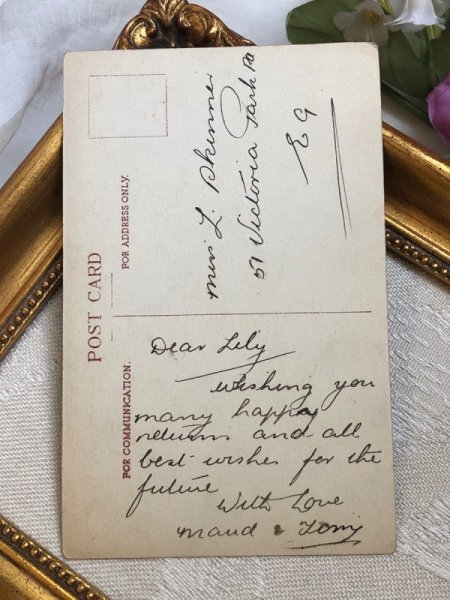 POST CARD
FOR COMMUNICATION.
FOR ADDRESS ONLY.
Dear Lily
Wishing you
many happy
returns and all
best wishes for the
future
With Love
Maud & Tony
Miss L. Skinner
51 Victoria Park Rd
E 9